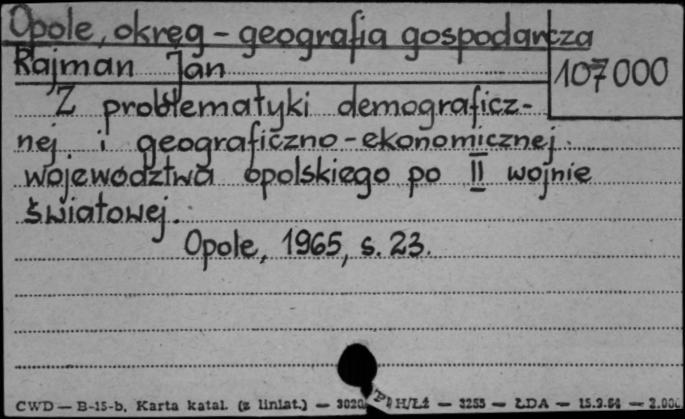 Opole, okręg - geografia gospodarcza
Rajman Jan
107000
Z problematyki demograficz-
nej i geograficzno-ekonomicznej
województwa opolskiego po II wojnie
światowej.
Opole, 1965, s. 23.
CWD — B-15-b, Karta katal. (z liniat.) — 3020 H/Łż — 3255 — ŁDA — 15.9.64 — 2.000